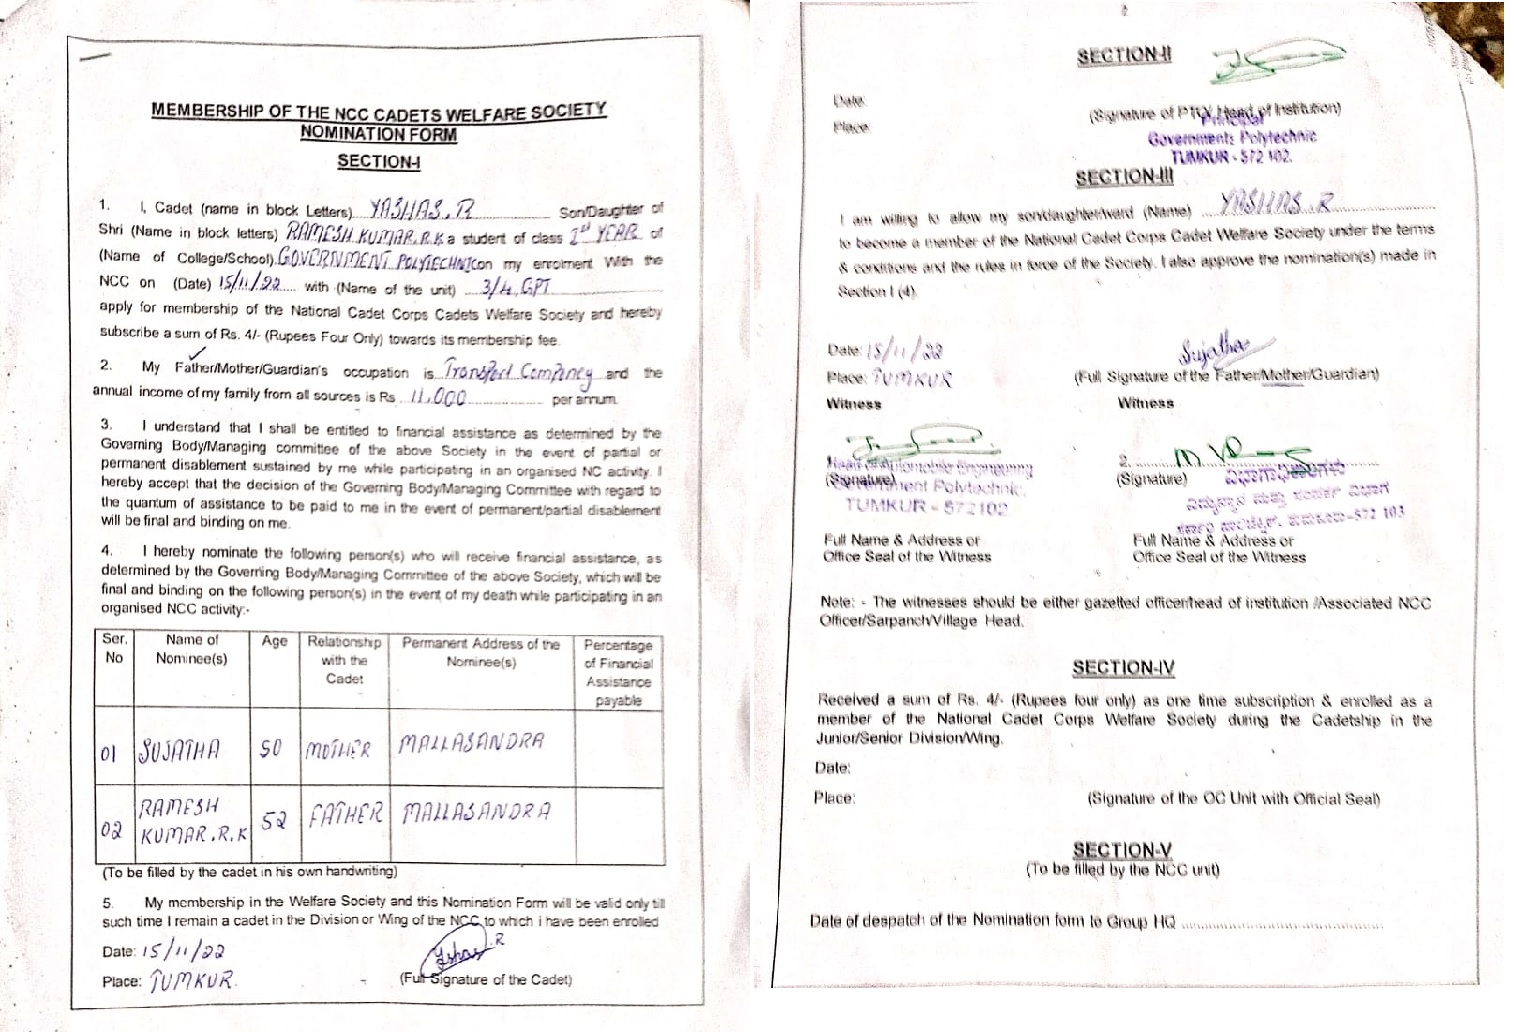 MEMBERSHIP OF THE NCC CADETS WELFARE SOCIETY
NOMINATION FORM
SECTION-I
1. I, Cadet (name in block Letters) YASHAS.R Son/Daughter of
Shri (Name in block letters) RAMESH KUMAR.R.K a student of class 1st YEAR of
(Name of College/School) GOVERNMENT POLYTECHNIC on my enrolment With the
NCC on (Date) 15/11/22 with (Name of the unit) 3/4 GPT
apply for membership of the National Cadet Corps Cadets Welfare Society and hereby
subscribe a sum of Rs. 4/- (Rupees Four Only) towards its membership fee.
2. My Father/Mother/Guardian's occupation is Transport Company and the
annual income of my family from all sources is Rs 11,000 per annum.
3. I understand that I shall be entitled to financial assistance as determined by the
Governing Body/Managing committee of the above Society in the event of partial or
permanent disablement sustained by me while participating in an organised NC activity. I
hereby accept that the decision of the Governing Body/Managing Committee with regard to
the quantum of assistance to be paid to me in the event of permanent/partial disablement
will be final and binding on me.
4. I hereby nominate the following person(s) who will receive financial assistance, as
determined by the Governing Body/Managing Committee of the above Society, which will be
final and binding on the following person(s) in the event of my death while participating in an
organised NCC activity:-
Ser. No Name of Nominee(s) Age Relationship with the Cadet Permanent Address of the Nominee(s) Percentage of Financial Assistance payable
01 SUJATHA 50 MOTHER MALLASANDRA
02 RAMESH KUMAR.R.K 52 FATHER MALLASANDRA
(To be filled by the cadet in his own handwriting)
5. My membership in the Welfare Society and this Nomination Form will be valid only till
such time I remain a cadet in the Division or Wing of the NCC to which i have been enrolled
Date: 15/11/22
Place: TUMKUR.
Yashas.R
(Full Signature of the Cadet)
SECTION-II
Date:
Place:
(Signature of Head of Institution)
Principal
Governments Polytechnic
TUMKUR - 572 102.
SECTION-III
I am willing to allow my son/daughter/ward (Name) YASHAS.R
to become a member of the National Cadet Corps Cadet Welfare Society under the terms
& conditions and the rules in force of the Society. I also approve the nomination(s) made in
Section I (4).
Date: 15/11/22
Place: TUMKUR
Sujatha
(Full Signature of the Father/Mother/Guardian)
Witness
Witness
Head of Automobile Engineering
(Signature)
Government Polytechnic,
TUMKUR - 572102
2.
(Signature)
Full Name & Address or
Office Seal of the Witness
Full Name & Address or
Office Seal of the Witness
Note: - The witnesses should be either gazetted officer/head of institution /Associated NCC
Officer/Sarpanch/Village Head.
SECTION-IV
Received a sum of Rs. 4/- (Rupees four only) as one time subscription & enrolled as a
member of the National Cadet Corps Welfare Society during the Cadetship in the
Junior/Senior Division/Wing.
Date:
Place:
(Signature of the OC Unit with Official Seal)
SECTION-V
(To be filled by the NCC unit)
Date of despatch of the Nomination form to Group HQ